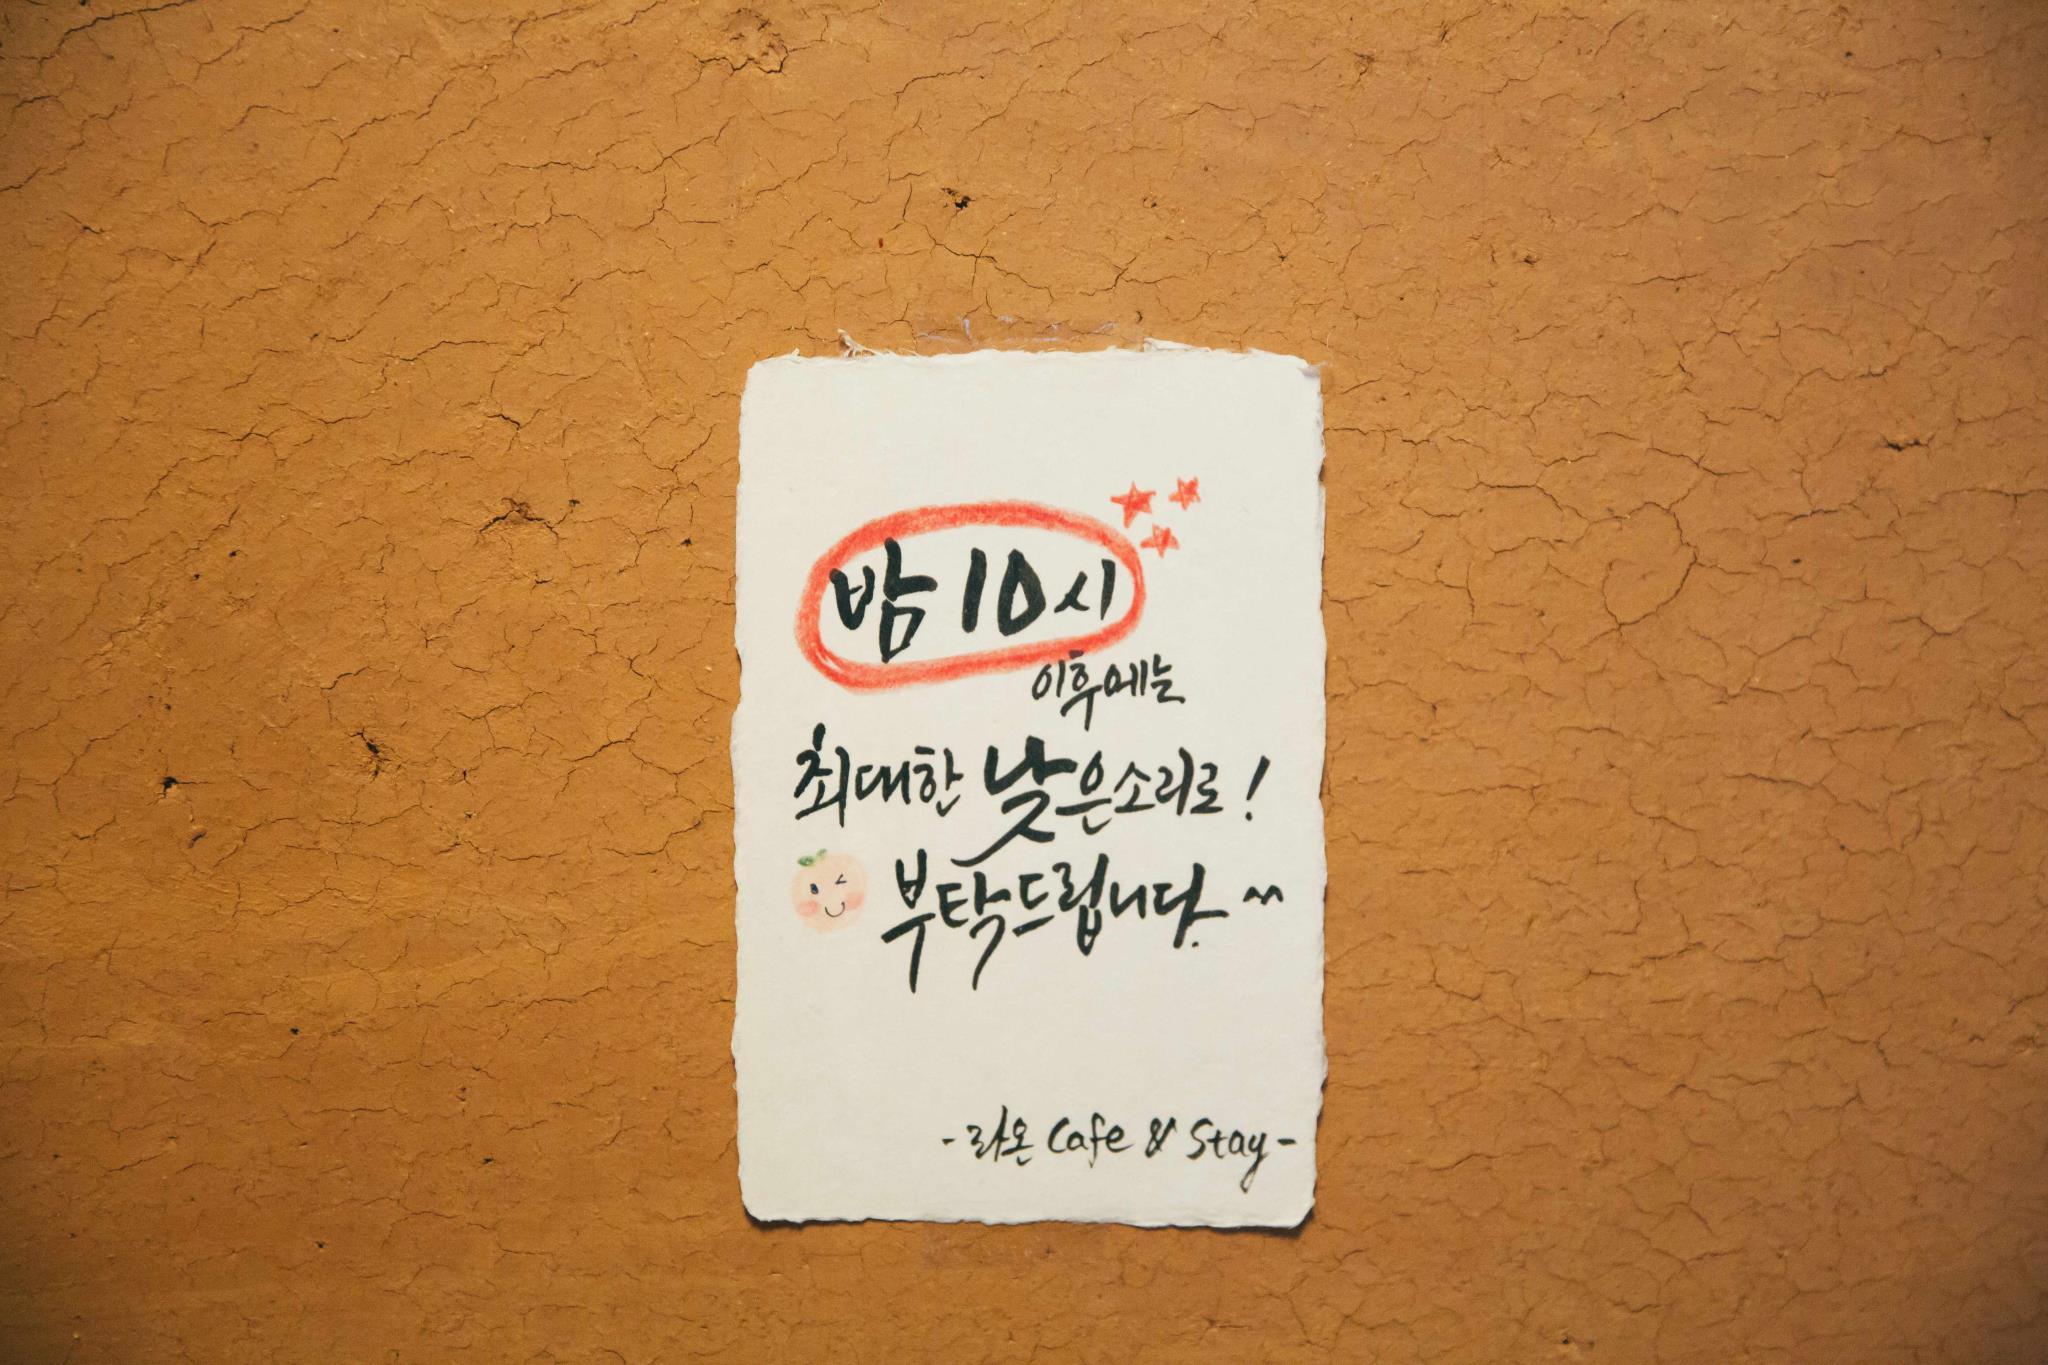 밤 10시
이후에는
최대한 낮은소리로!
부탁드립니다. ^^
-라온 Cafe & Stay-